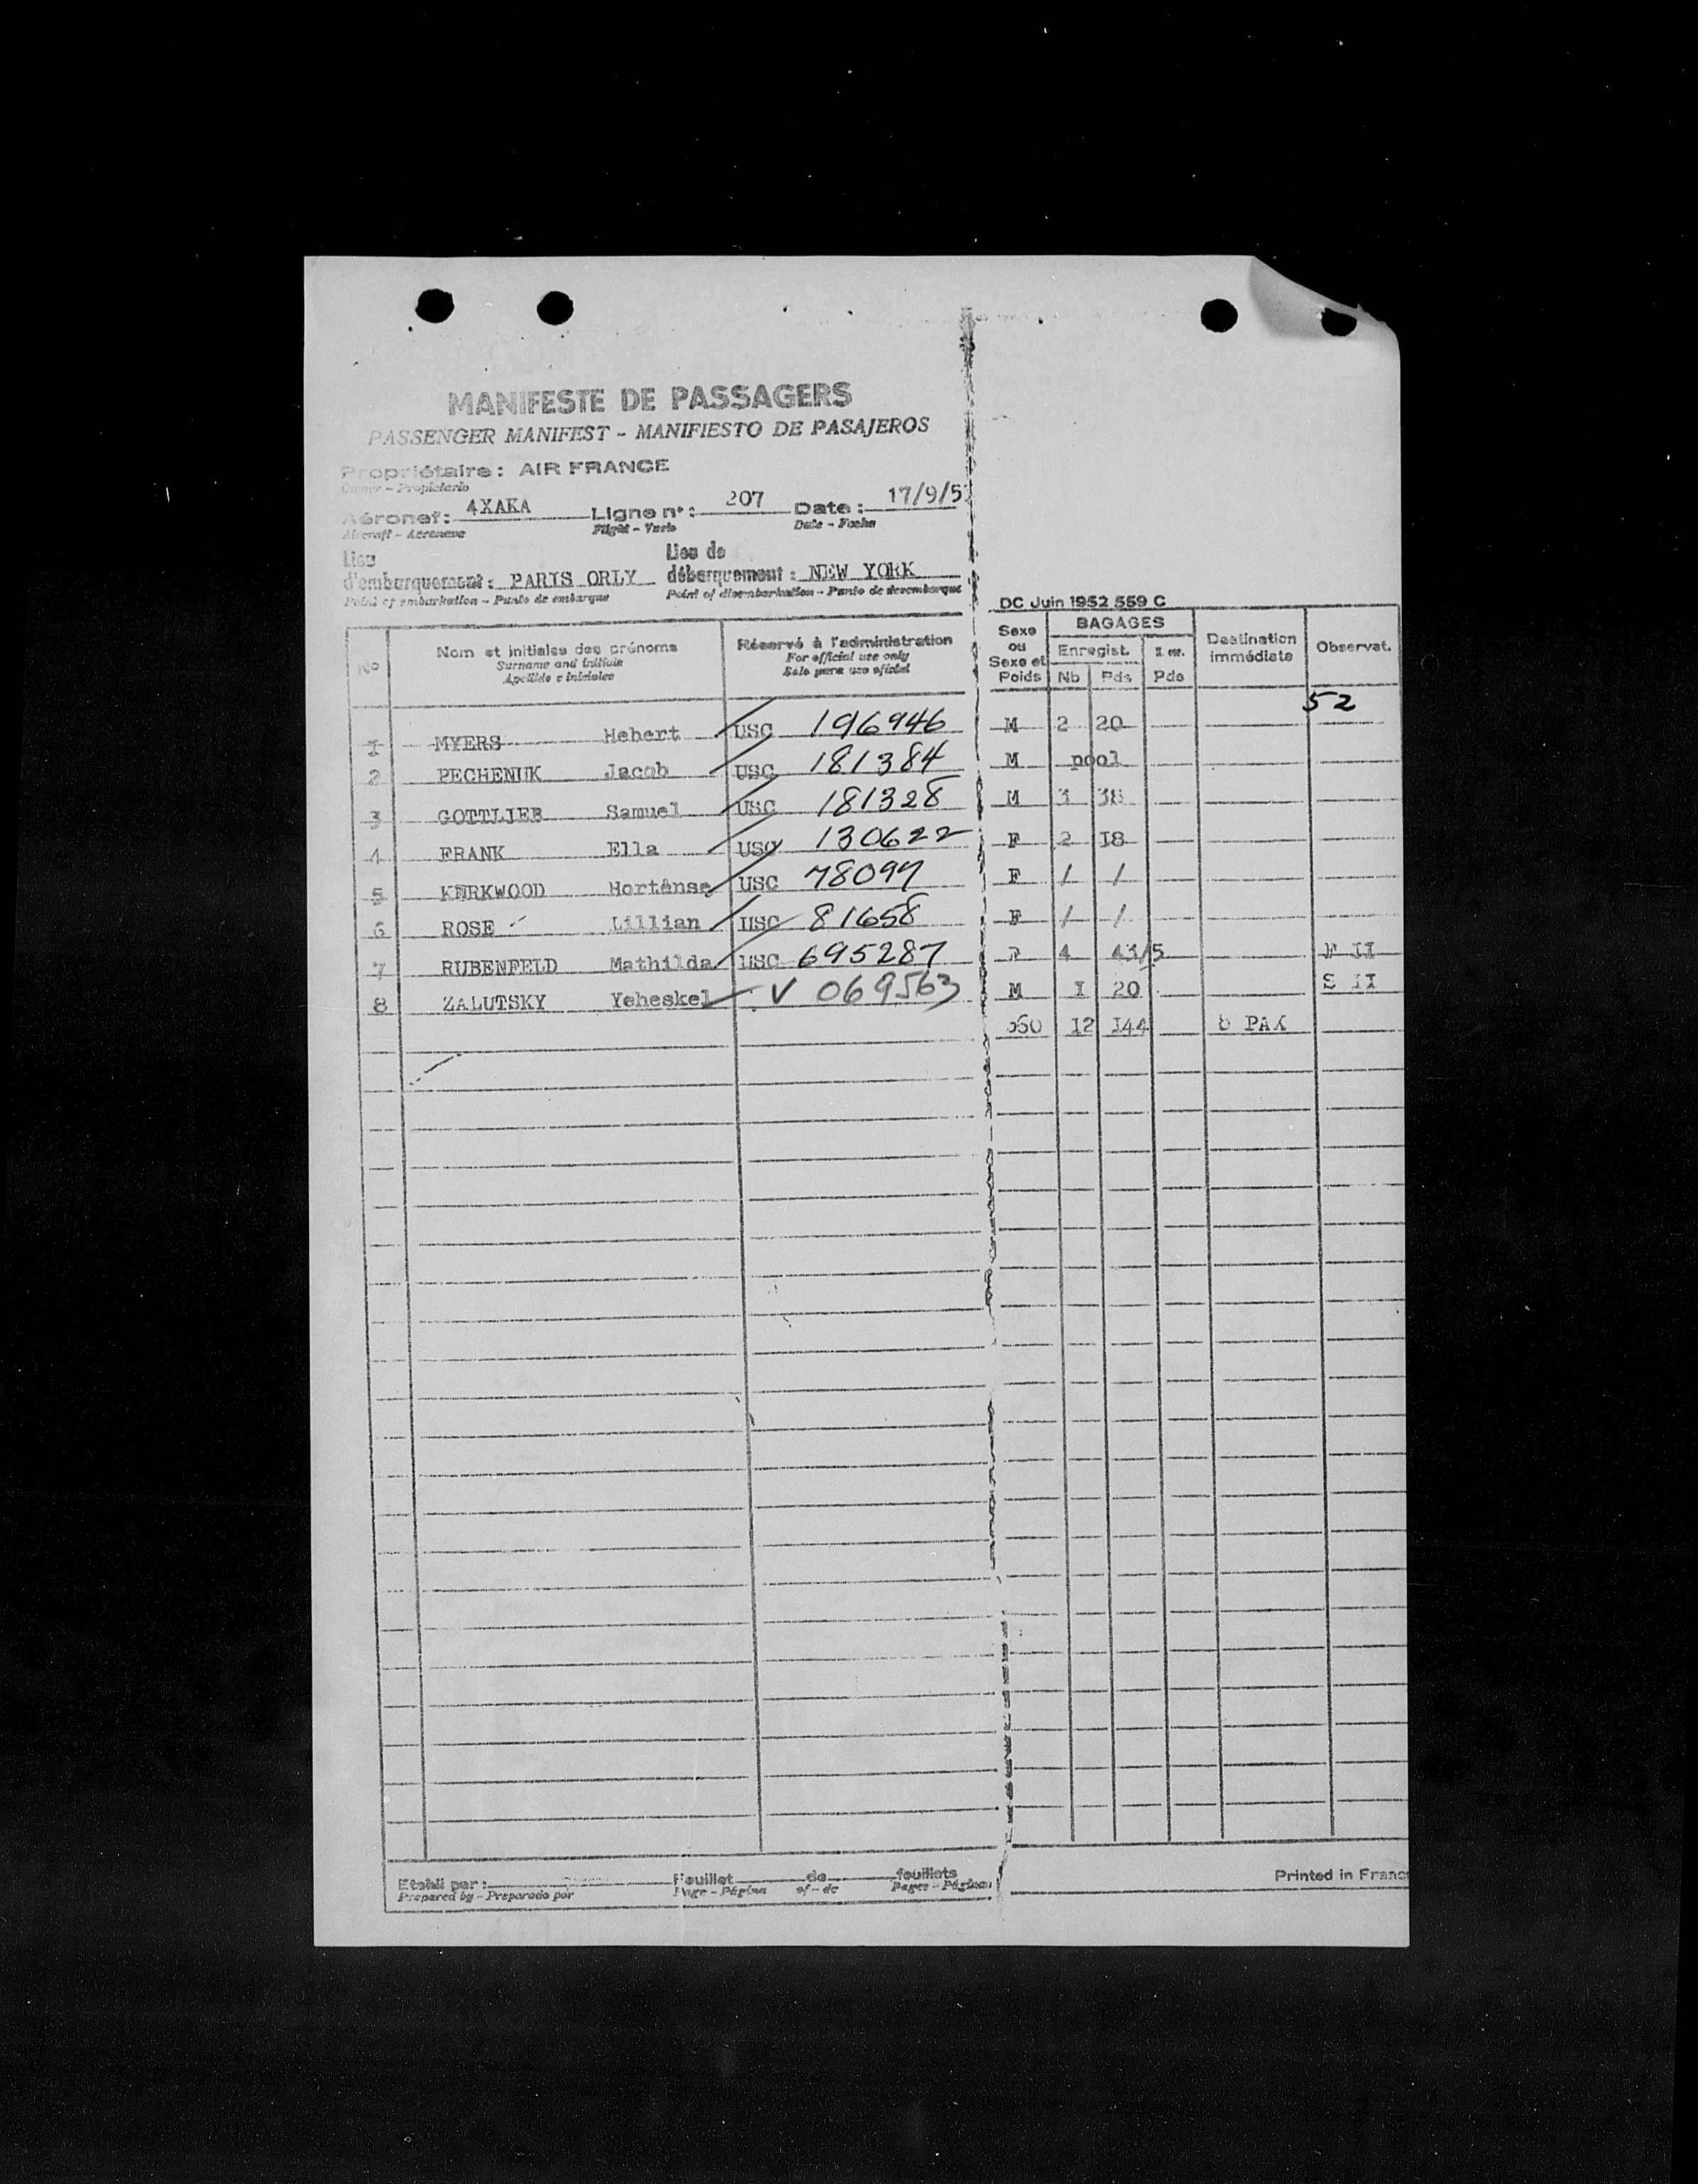 MANIFESTE DE PASSAGERS
PASSENGER MANIFEST - MANIFIESTO DE PASAJEROS
Propriétaire : AIR FRANCE
Owner - Propietario
Aéronef : 4XAKA Ligne n° : 207 Date : 17/9/5
Aircraft - Aeronave Flight - Date - Fecha
Lieu d'embarquement : PARIS ORLY Lieu de débarquement : NEW YORK
Point of embarkation - Punto de embarque Point of disembarkation - Punto de desembarque
DC Juin 1952 559 C
N° Nom et initiales des prénoms Réservé à l'administration Sexe ou Sexe et Poids BAGAGES Destination immédiate Observat.
Surname and initials For official use only Enregist.
Apellido e iniciales Sólo para uso oficial Nb Pds Pds
52
1 MYERS Hebert USC 196946 M 2 20
2 PECHENUK Jacob USC 181384 M pool
3 GOTTLIEB Samuel USC 181328 M 3 38
4 FRANK Ella USC 130622 F 2 I8
5 KERKWOOD Hortênse USC 78097 F / /
6 ROSE Lillian USC 81658 F / /
7 RUBENFELD Mathilda USC 695287 4 43/5 F II
8 ZALUTSKY Yeheskel V 069563 M I 20 S II
I2 I44 8 PAX
Etabli par : Feuillet de feuillets
Prepared by - Preparado por Page - Página of - de Pages - Páginas
Printed in Franc